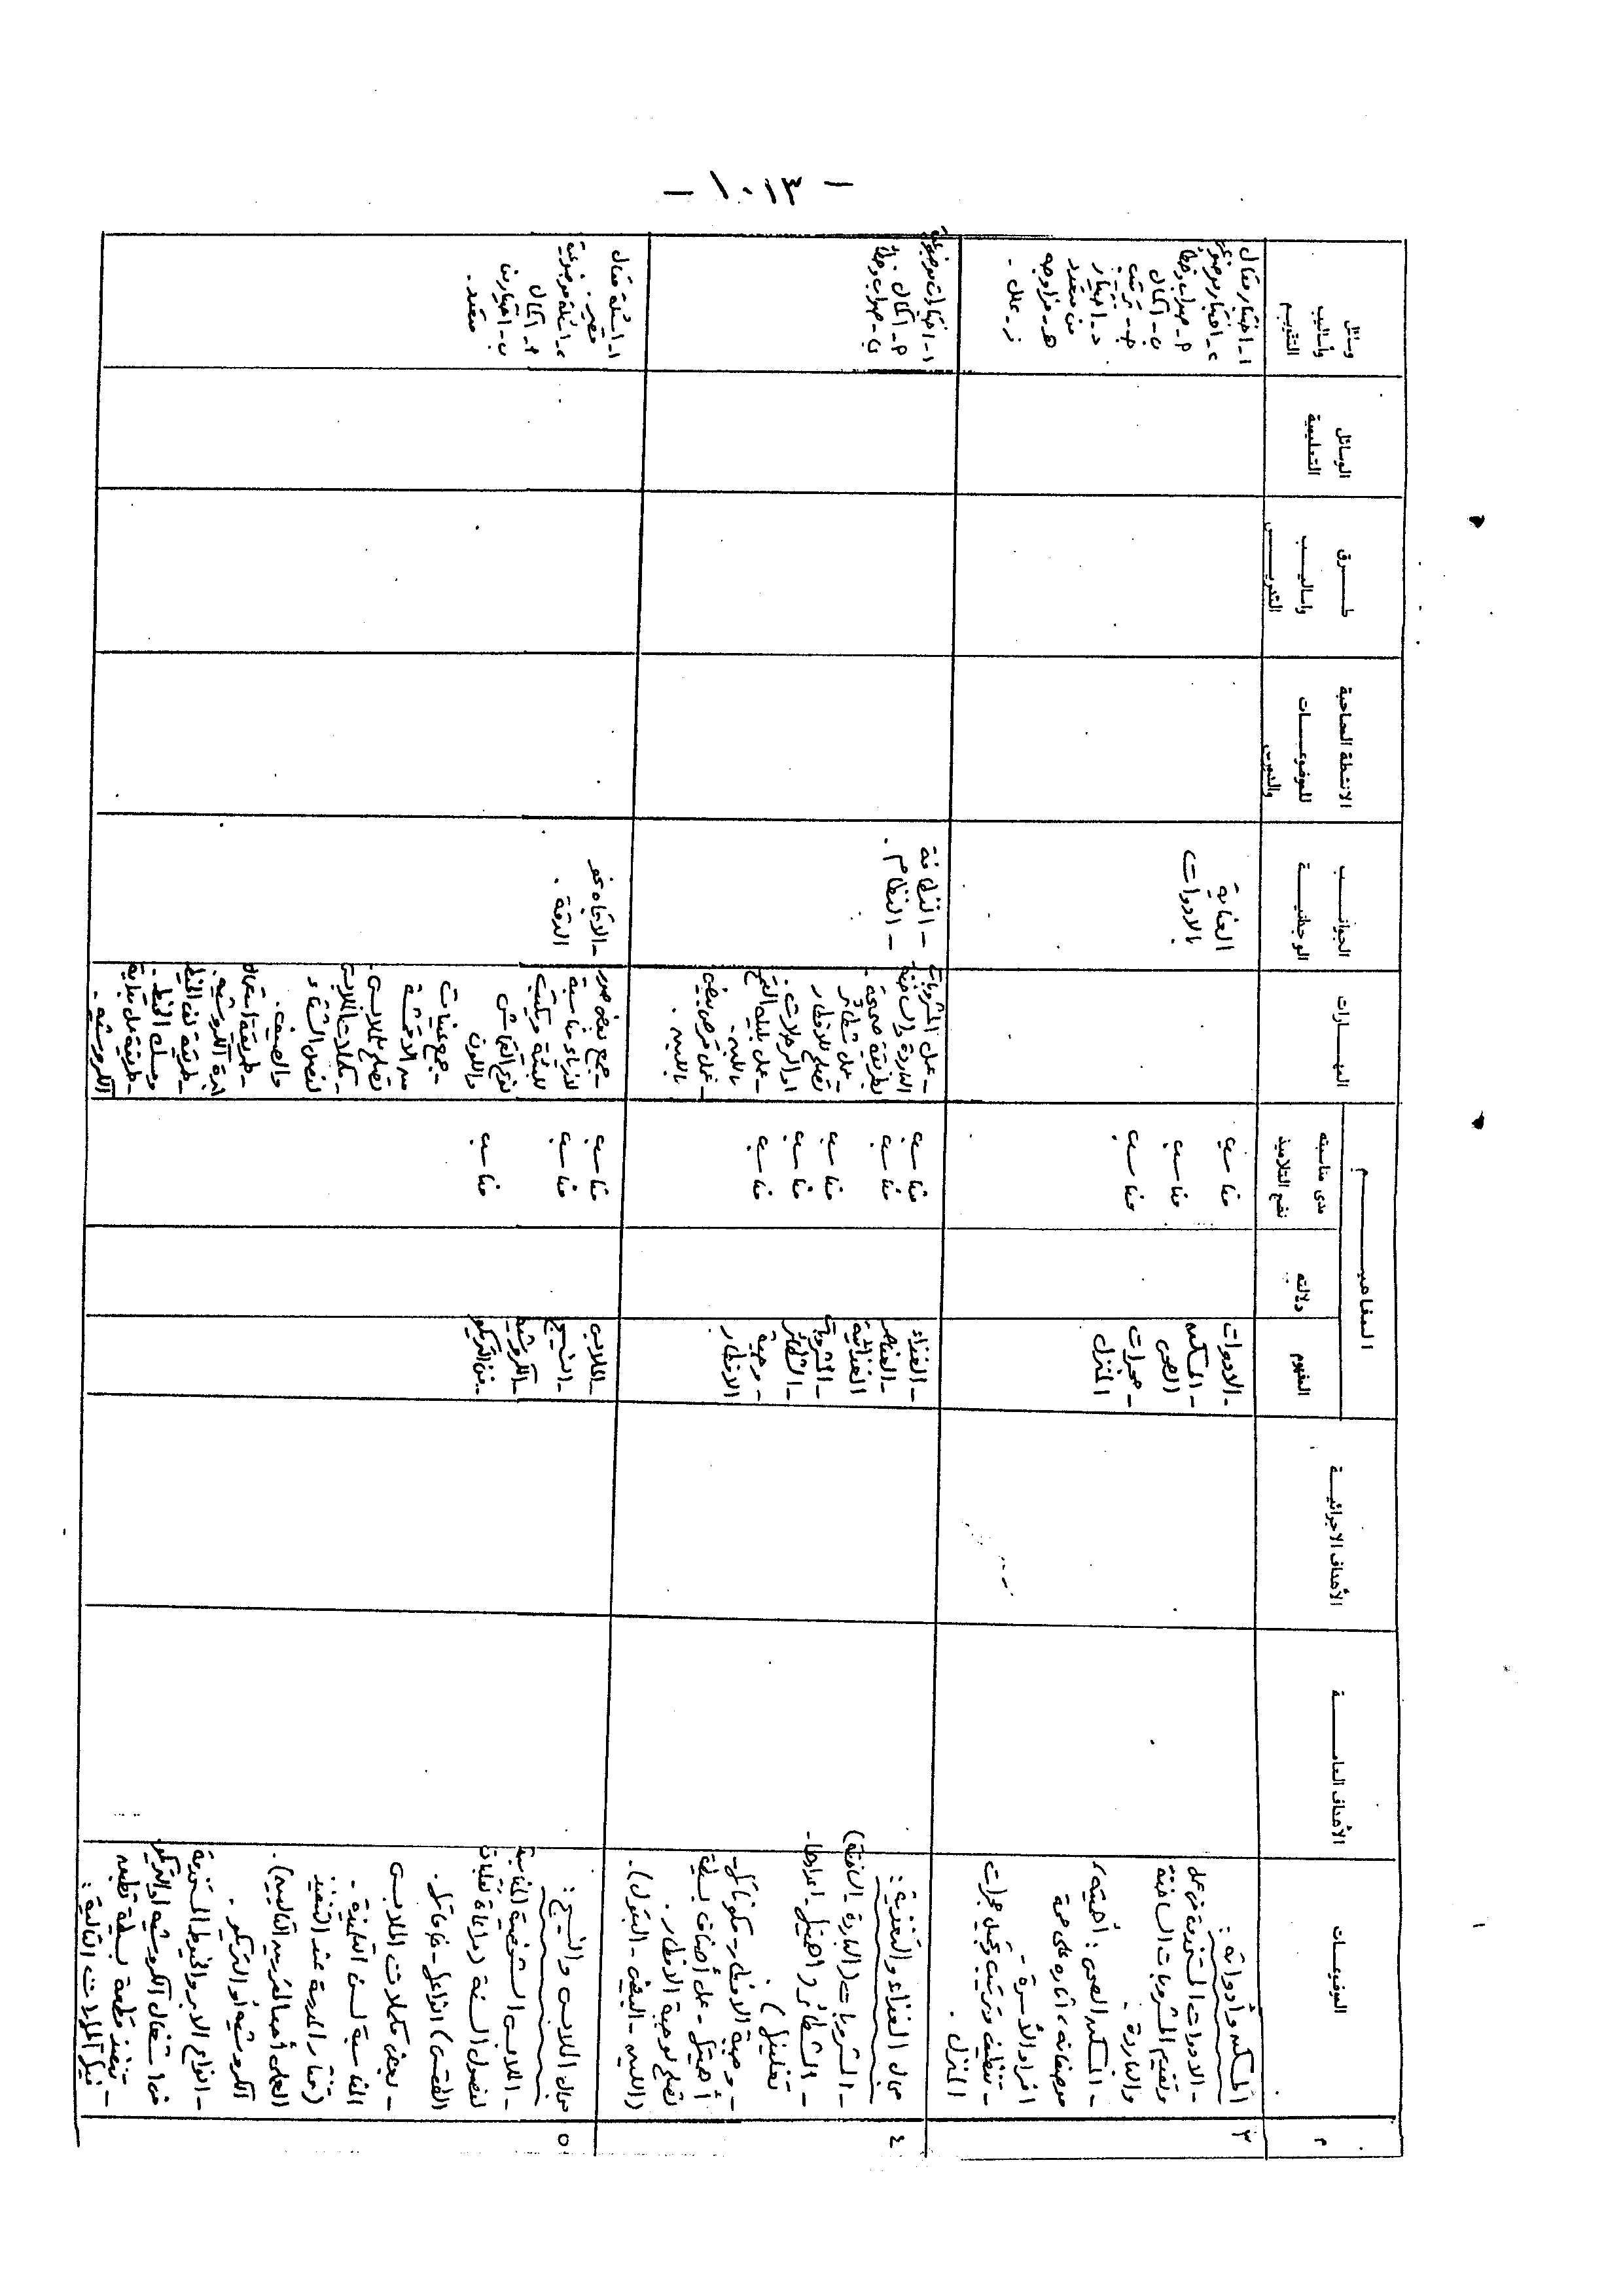 - ١٠١٣ -
م
الموضوعات
الأهداف العامة
الأهداف الاجرائية
المفاهيم
المفهوم
دلالته
مدى مناسبته
نضج التلاميذ
المهارات
الجوانب
الوجدانية
الانشطة المصاحبة
للموضوعات
طرق
واساليب
التدريس
الوسائل
التعليمية
وسائل
وأساليب
التقويم
٣
المسكن وأدواته :
- الادوات المستخدمة في عمل
وتقديم المشروبات الساخنة
والباردة .
- المسكن الصحي : أهميته،
مواصفاته، آثاره على صحة
افراد الأسرة -
- تنظيف وترتيب وتجميل حجرات
المنزل .
- الادوات
- المسكن
الصحي
- حجرات
المنزل
مناسب
مناسب
مناسب
العناية
بالادوات
١- اختبار مقال
٢- اختبار موضوعي
م- صواب وخطأ
ب- اكمال
ج- ترتيب
د- اختيار
من متعدد
هـ- مزاوجه
ز- علل -
٤
مجال الغذاء والتغذية :
- المشروبات (الباردة - الساخنة)
- الشطائر (أهميتها - اعدادها -
تغليفها) .
- وجبة الافطار - مكوناتها -
أهميتها - عمل أصناف بسيطة
تصلح لوجبة الافطار .
(اللبن - البيض - البقول) .
- الغذاء
- العناصر
الغذائية
- المشروبات
- الشطائر
- وجبة
الافطار
مناسب
مناسب
مناسب
مناسب
مناسب
- عمل المشروبات
الباردة والساخنة
بطريقة صحيحة .
- عمل شطائر
تصلح للافطار
او الرحلات .
- عمل بليلة القمح
باللبن .
- عمل قرص بيض
باللبن .
- النظافة
- النظام .
١- اختبارات موضوعية
م- اكمال
ب- صواب وخطأ
٥
مجال الملابس والنسيج :
- الملابس الشخصية المناسبة
لفصول السنة (مراعاة تقلبات
الطقس) انواعها - خاماتها .
- بعض مكملات الملابس
المناسبة لسن التلميذة -
(تختار المدرسة عند التنفيذ
العملي أحد الغرضين التاليين) .
الكروشيه أو التريكو .
- انواع الابر والخيوط المستخدمة
في اشغال الكروشيه او التريكو
- تنفيذ قطعة بسيطة تطبيقه
على المهارات التالية :
- الملابس
- النسيج
- الكروشيه
- فن التريكو
مناسب
مناسب
مناسب
- جمع بعض صور
لازياء مناسبة
للبيئة من حيث
نوع القماش
واللون
- جمع عينات
من الاقمشة
تصلح للملابس .
- مكملات الملابس
لفصل الشتاء
والصيف .
- طريقة استعمال
ابرة الكروشيه .
- طريقة لف الخيط
ومسك الخيط .
- طريقة عمل بداية
الكروشيه .
- الاتجاه نحو
الدقة .
١- اسئلة مقال
قصير .
٢- اسئلة موضوعية
م- اكمال
ب- اختيار من
متعدد .